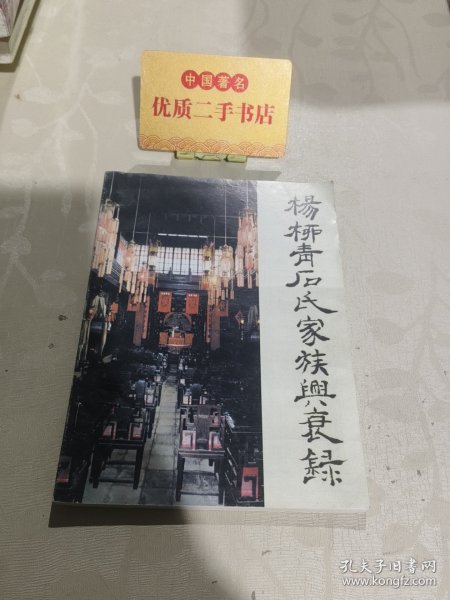 中国著名
优质二手书店
楊柳青石氏家族興衰録
孔夫子旧书网
www.kongfz.com